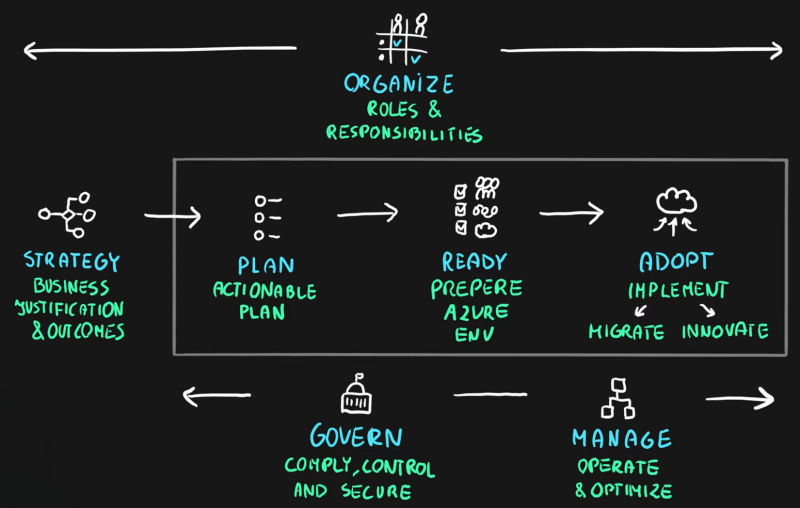 ORGANIZE
ROLES &
RESPONSIBILITIES
STRATEGY
BUSINESS
JUSTIFICATION
& OUTCOMES
PLAN
ACTIONABLE
PLAN
READY
PREPERE
AZURE
ENV
ADOPT
IMPLEMENT
MIGRATE INNOVATE
GOVERN
COMPLY, CONTROL
AND SECURE
MANAGE
OPERATE
& OPTIMIZE